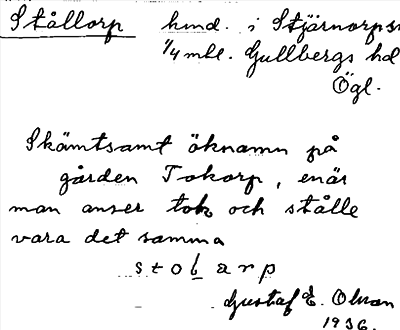 Stållorp hmd. i Stjärnorps
1/4 mtl. Gullbergs hd
Ögl.
Skämtsamt öknamn på
gården Tokorp, enär
man anser tok och stålle
vara det samma
stolarp
Gustaf E. Olson
1936.